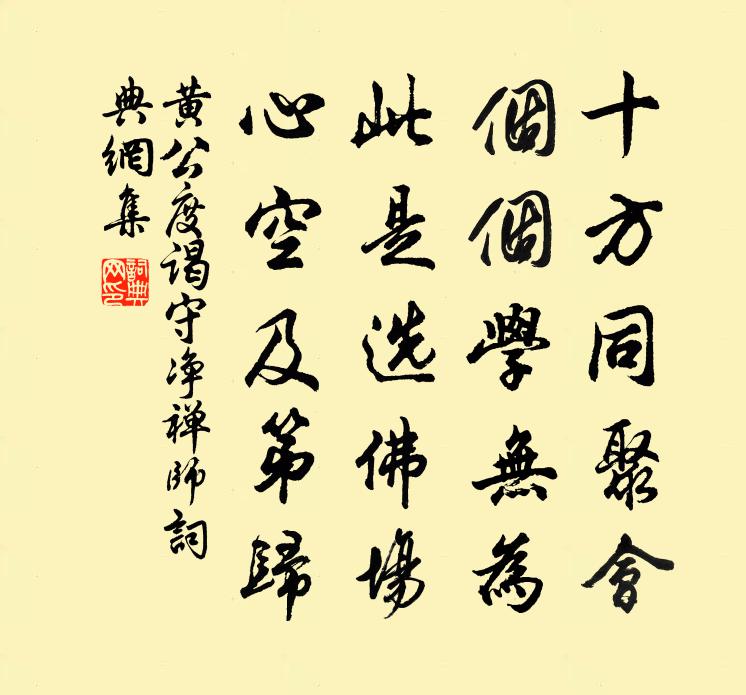 十方同聚會
個個學無為
此是选佛場
心空及第歸
黄公度謁守净禅師詞
典網集
詞典
网印